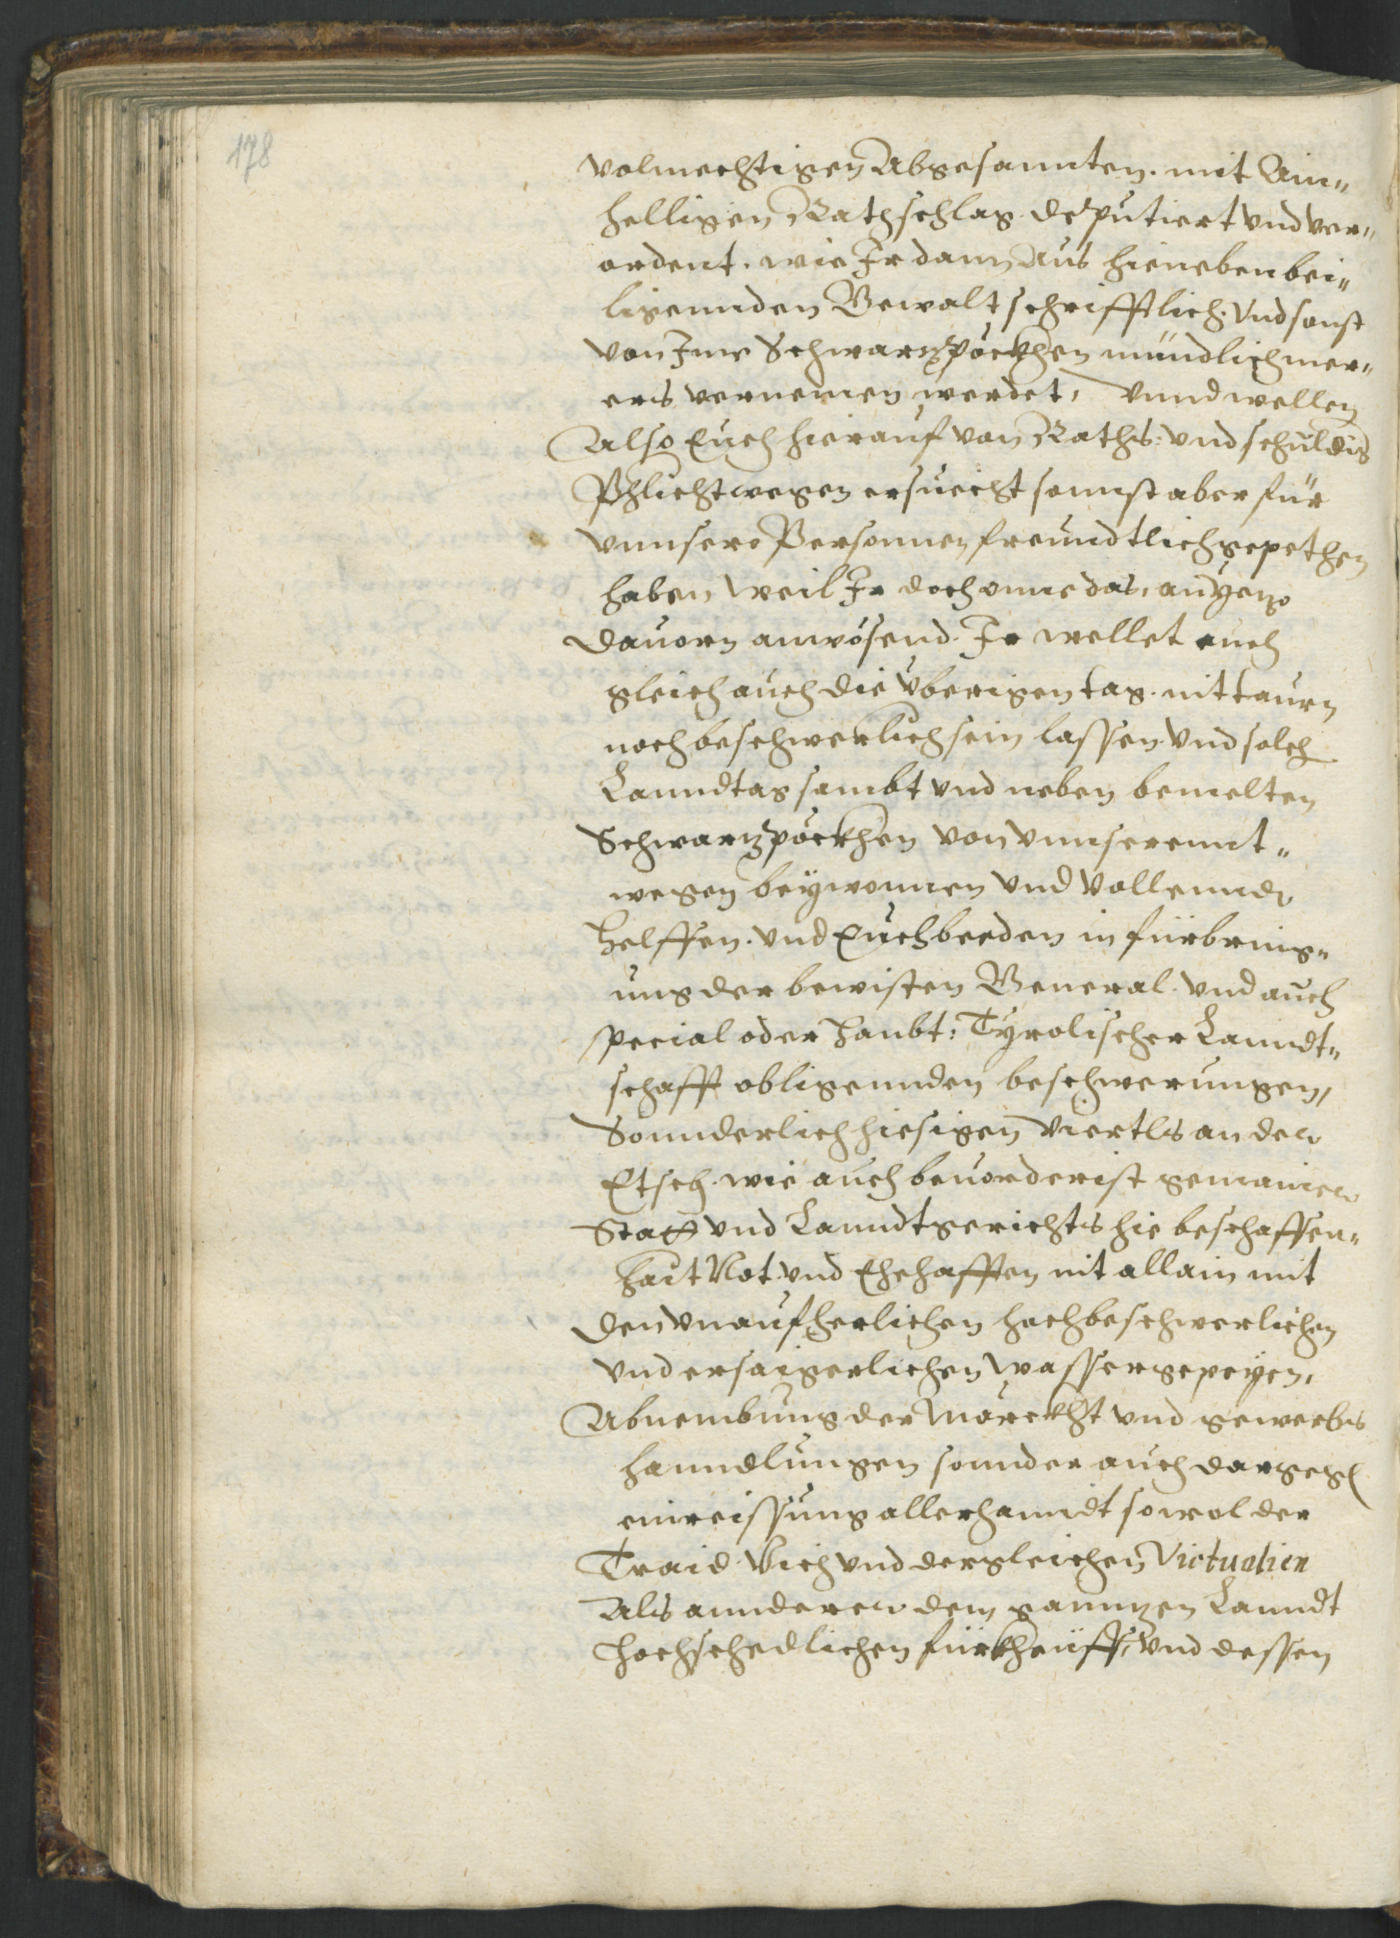 178
volmechtigen Abgesannten. mit Ain„
helligen Rathschlag. deputiert vnd ver„
ordent. wie Ir dann aus hieneben bei„
ligennden Gewalt schrifftlich. Vnd sonst
von Ime Schwarzpöckhen mündlich mer„
ers vernemen werdet, Vnnd wellen
Also Euch hierauf von Raths: vnd schuldig
Phlicht wegen ersuecht sonnst aber für
vnnsere Personnen freundtlich gepethen
haben, Weil Ir doch onne das, anyezo
dauorn anwösend. Ir wellet euch
gleich auch die Vberigen tag. nit taurn
noch beschwerlich sein lassen. Vnd solch
Lanndtag sambt vnd neben bemelten
Schwarzpöckhen von vnnserennt„
wegen beÿwonnen vnd Vollennde
helffen. Vnd Euch beeden in fürbring„
ung der bewisten General. vnd auch
special oder Haubt: Tyrolischer Lanndt„
schafft obligennden beschwerungen,
Sonnderlich hiesigen Viertls an der
Etsch. wie auch beuorderist gemainer
Statt vnd Lanndtgerichts hie beschaffen„
hait Not. vnd Ehehafften nit allain mit
den vnaufherlichen hochbeschwerlichen
vnd ersaigerlichen Wassergepeyen,
Abnembung der Märckht vnd gewerbs
hanndlungen sonnder auch dargegen
einreissung allerhanndt sowol der
Traid Vich vnd dergleichen Victualien
Als annderer dem gannzen Lanndt
hochschedlichen fürkheüff, Vnd dessen